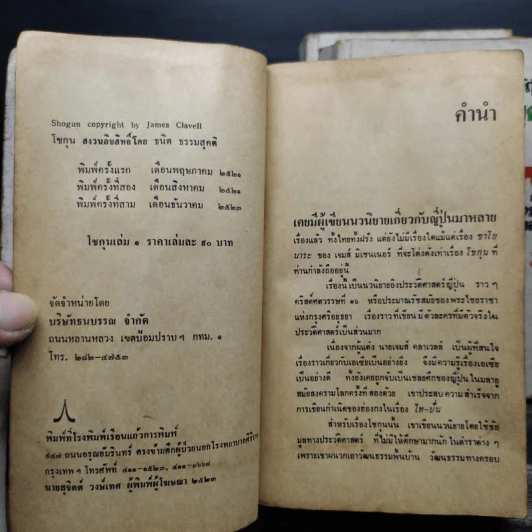 Shogun copyright by James Clavell
โชกุน สงวนลิขสิทธิ์โดย ธนิต ธรรมสุคติ
พิมพ์ครั้งแรก เดือนพฤษภาคม ๒๕๒๑
พิมพ์ครั้งที่สอง เดือนสิงหาคม ๒๕๒๑
พิมพ์ครั้งที่สาม เดือนธันวาคม ๒๕๒๓
โชกุนเล่ม ๑ ราคาเล่มละ ๕๐ บาท
จัดจำหน่ายโดย
บริษัทธนบรรณ จำกัด
ถนนหลานหลวง เขตป้อมปราบฯ กทม. ๑
โทร. ๒๘๒-๔๗๕๓
พิมพ์ที่โรงพิมพ์เรือนแก้วการพิมพ์
๙๔๗ ถนนอรุณอัมรินทร์ ตรงข้ามตึกผู้ป่วยนอกโรงพยาบาลศิริราช
กรุงเทพฯ โทรศัพท์ ๔๑๑-๑๕๒๓, ๔๑๑-
นายสุจิตต์ วงษ์เทศ ผู้พิมพ์ผู้โฆษณา ๒๕๒๓
คำนำ
เคยมีผู้เขียนนวนิยายเกี่ยวกับญี่ปุ่นมาหลาย
เรื่องแล้ว ทั้งไทยทั้งฝรั่ง แต่ยังไม่มีเรื่องใดแม้แต่เรื่อง ซาโย
นาระ ของ เจมส์ มิเชนเนอร์ ที่จะโด่งดังเท่าเรื่อง โชกุน ที่
ท่านกำลังถืออยู่นี้
เรื่องนี้เป็นนวนิยายอิงประวัติศาสตร์ญี่ปุ่น ราว ๆ
คริสต์ศตวรรษที่ ๑๖ หรือประมาณรัชสมัยของ พระไชยราชา
แห่งกรุงศรีอยุธยา เรื่องราวที่เขียนมีตัวละครที่มีตัวจริงใน
ประวัติศาสตร์เป็นส่วนมาก
เนื่องจากผู้แต่ง นายเจมส์ คลาเวลล์ เป็นผู้ที่สนใจ
เรื่องราวเกี่ยวกับเอเซียเป็นอย่างยิ่ง จึงมีความรู้เรื่องเอเซีย
เป็นอย่างดี ทั้งยังเคยถูกจับเป็นเชลยศึกของญี่ปุ่นในมลายู
สมัยสงครามโลกครั้งที่สองด้วย เขาประสบความสำเร็จจาก
การเขียนกำเนิดของฮ่องกงในเรื่อง ไท-ปัน
สำหรับเรื่องโชกุนนั้น เขาเขียนนวนิยายโดยใช้ข้อ
มูลทางประวัติศาสตร์ ที่ไม่มีให้ศึกษามากนักในตำราต่าง ๆ
เพราะเขาผนวกเอาวัฒนธรรมพื้นบ้าน วัฒนธรรมทางครอบ